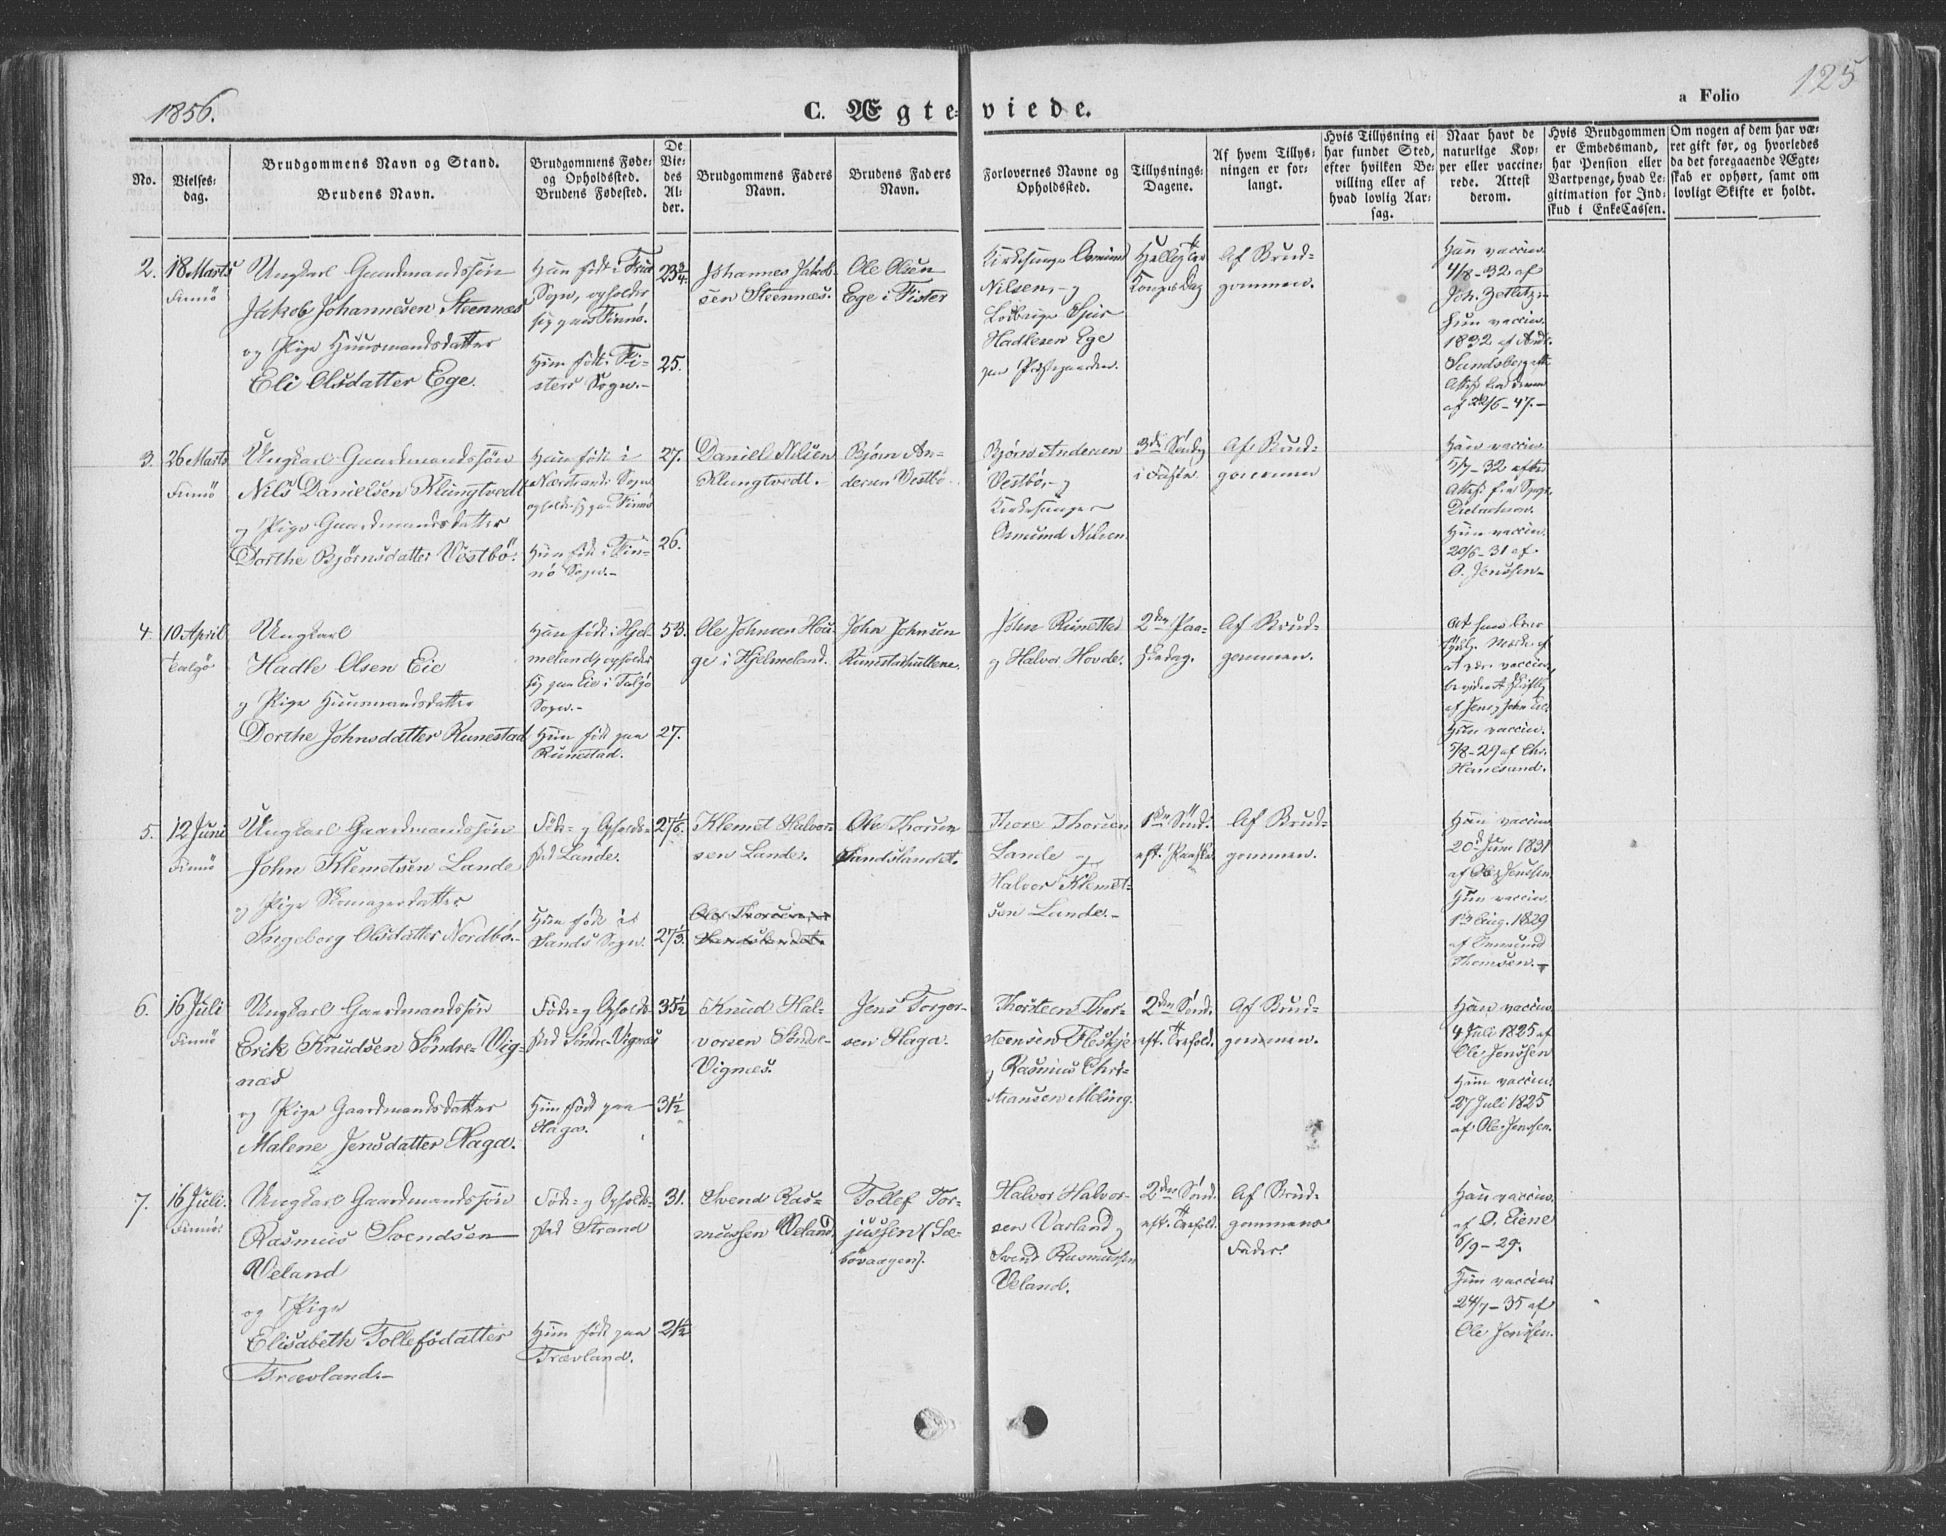 1856.
C. Ægteviede.
a Folio 125
No.
Vielsesdag.
Brudgommens Navn og Stand.
Brudens Navn.
Brudgommens Føde- og Opholdssted.
Brudens Fødested.
De Viedes Alder.
Brudgommens Faders Navn.
Brudens Faders Navn.
Forlovernes Navne og Opholdssted.
Tillysnings-Dagene.
Af hvem Tillysningen er forlangt.
Hvis Tillysning ei har fundet Sted, efter hvilken Bevilling eller af hvad lovlig Aarsag.
Naar havt de naturlige Kopper eller vaccinerede. Attest derom.
Hvis Brudgommen er Embedsmand, har Pension eller Vartpenge, hvad Legitimation for Indskud i EnkeCassen.
Om nogen af dem har været gift før, og hvorledes da det foregaaende Ægteskab er ophørt, samt om lovligt Skifte er holdt.
2.
18 Marts
Finnö
Ungkarl Gaardmandssön
Jakob Johannesen Steennæs
og Pige Huusmandsdatter
Eli Olsdatter Ege.
Han födt i
Sogn, opholder
sig paa Finnö.
Hun födt i Fi-
sters Sogn.-
23 3/4.
25.
Johannes Jakob-
sen Steennæs.
Ole Olsen
Ege i Fister
Kirkesanger Osmund
Nilsen, og
Sjur
Hadlesen Ege
paa Præstegaarden.
Af Brud-
gommen.
Han vaccin.
4/8-32 af
Joh. Zetlitz
Hun vaccin.
1832 af
Sundsberg
af 22/6-47.-
3.
26 Marts
Finnö
Ungkarl Gaardmandssön
Nils Danielsen Klungtvedt
og Pige Gaardmandsdatter
Dorthe Björnsdatter Vestbö.
Han födt i
Nærstrands Sogn
opholder sig paa Finnö
Hun födt i Fin-
nö Sogn.-
27.
26.
Daniel Nilsen
Klungtvedt.
Björn An-
dersen Vestbö.
Björn Andersen
Vestbö, og
Kirkesanger
Osmund Nilsen.
3die Söndag
i Faste.
Af Brud-
gommen
Han vaccin
5/7-32
Hun vaccin.
20/6-31 af
O. Jenssen-
4.
10 April
Talgö
Ungkarl
Hadle Olsen Eie
og Pige Huusmandsdatter
Dorthe Johnsdatter Runestad
Han födt i Hjel-
meland, opholder
sig paa Eie i Talgö
Sogn.-
Hun födt paa
Runestad.
53.
27.
Ole Johnsen Hou-
ge i Hjelmeland.
John Johnsen
John Runestad
og Halvor Hovde.
2den Paa-
skedag.
Af Brud-
gommen.
Hun vaccin.
7/8-29 af Chr.
5.
12 Juni
Finnö
Ungkarl Gaardmandssön
John Klemetsen Lande
og Pige Skomagerdatter
Ingeborg Olsdatter Nordbö.-
Föde- og Opholds-
sted Lande.
Hun födt i
Sands Sogn.
27 1/6.
27 1/3.
Klemet Halvor-
sen Lande.
Ole Thorsen
Sandslandet.
Ole Thorsen
Sandslandet.
Thore Thorsen
Lande og
Halvor Klemet-
sen Lande.-
1ste Sönd.
eft. Paaske.
Af Brud-
gommen.
Han vaccin
20de Juni 1831
af Ole Jenssen
Hun vaccin.
Aug. 1829
af Osmund
Thomsen.-
6.
16 Juli
Finnö
Ungkarl Gaardmandssön
Erik Knudsen Söndre-Vig-
næs
og Pige Gaardmandsdatter
Malene Jensdatter Haga.
Föde- og Opholds-
sted Söndre-Vignæs
Hun födt paa
Haga.
35 1/2
31 1/2
Knud Hal-
vorsen Söndre-
Vignæs.
Jens Torger-
sen Haga.
Thorsteen Thor-
steensen Fleskje
og Rasmus Chri-
stiansen Meling.
2den Sönd.
eft. Trefold.
Af Brud-
gommen.
Han vaccin
4 Juli 1825 af
Ole Jenssen
Hun vaccin.
27 Juli 1825
af Ole Jenssen.
7.
16 Juli.
Finnö
Ungkarl Gaardmandssön
Rasmus Svendsen
Veland
og Pige
Elisabeth Tollefsdatter
Trævland.-
Föde- og Opholds-
sted Strand
Hun födt paa
Trævland.
31.
21 1/2
Svend Ras-
mussen Veland.
Tollef Tor-
jussen (Sæ-
bövaagen).
Halvor Halvor-
sen Varland og
Svend Rasmussen
Veland.
2den Sönd.
eft. Trefold.
Af Brud-
gommens
Fader.
Han vaccin.
af O. Eiene
6/9-29.
Hun vaccin.
24/7-35 af
Ole Jenssen.